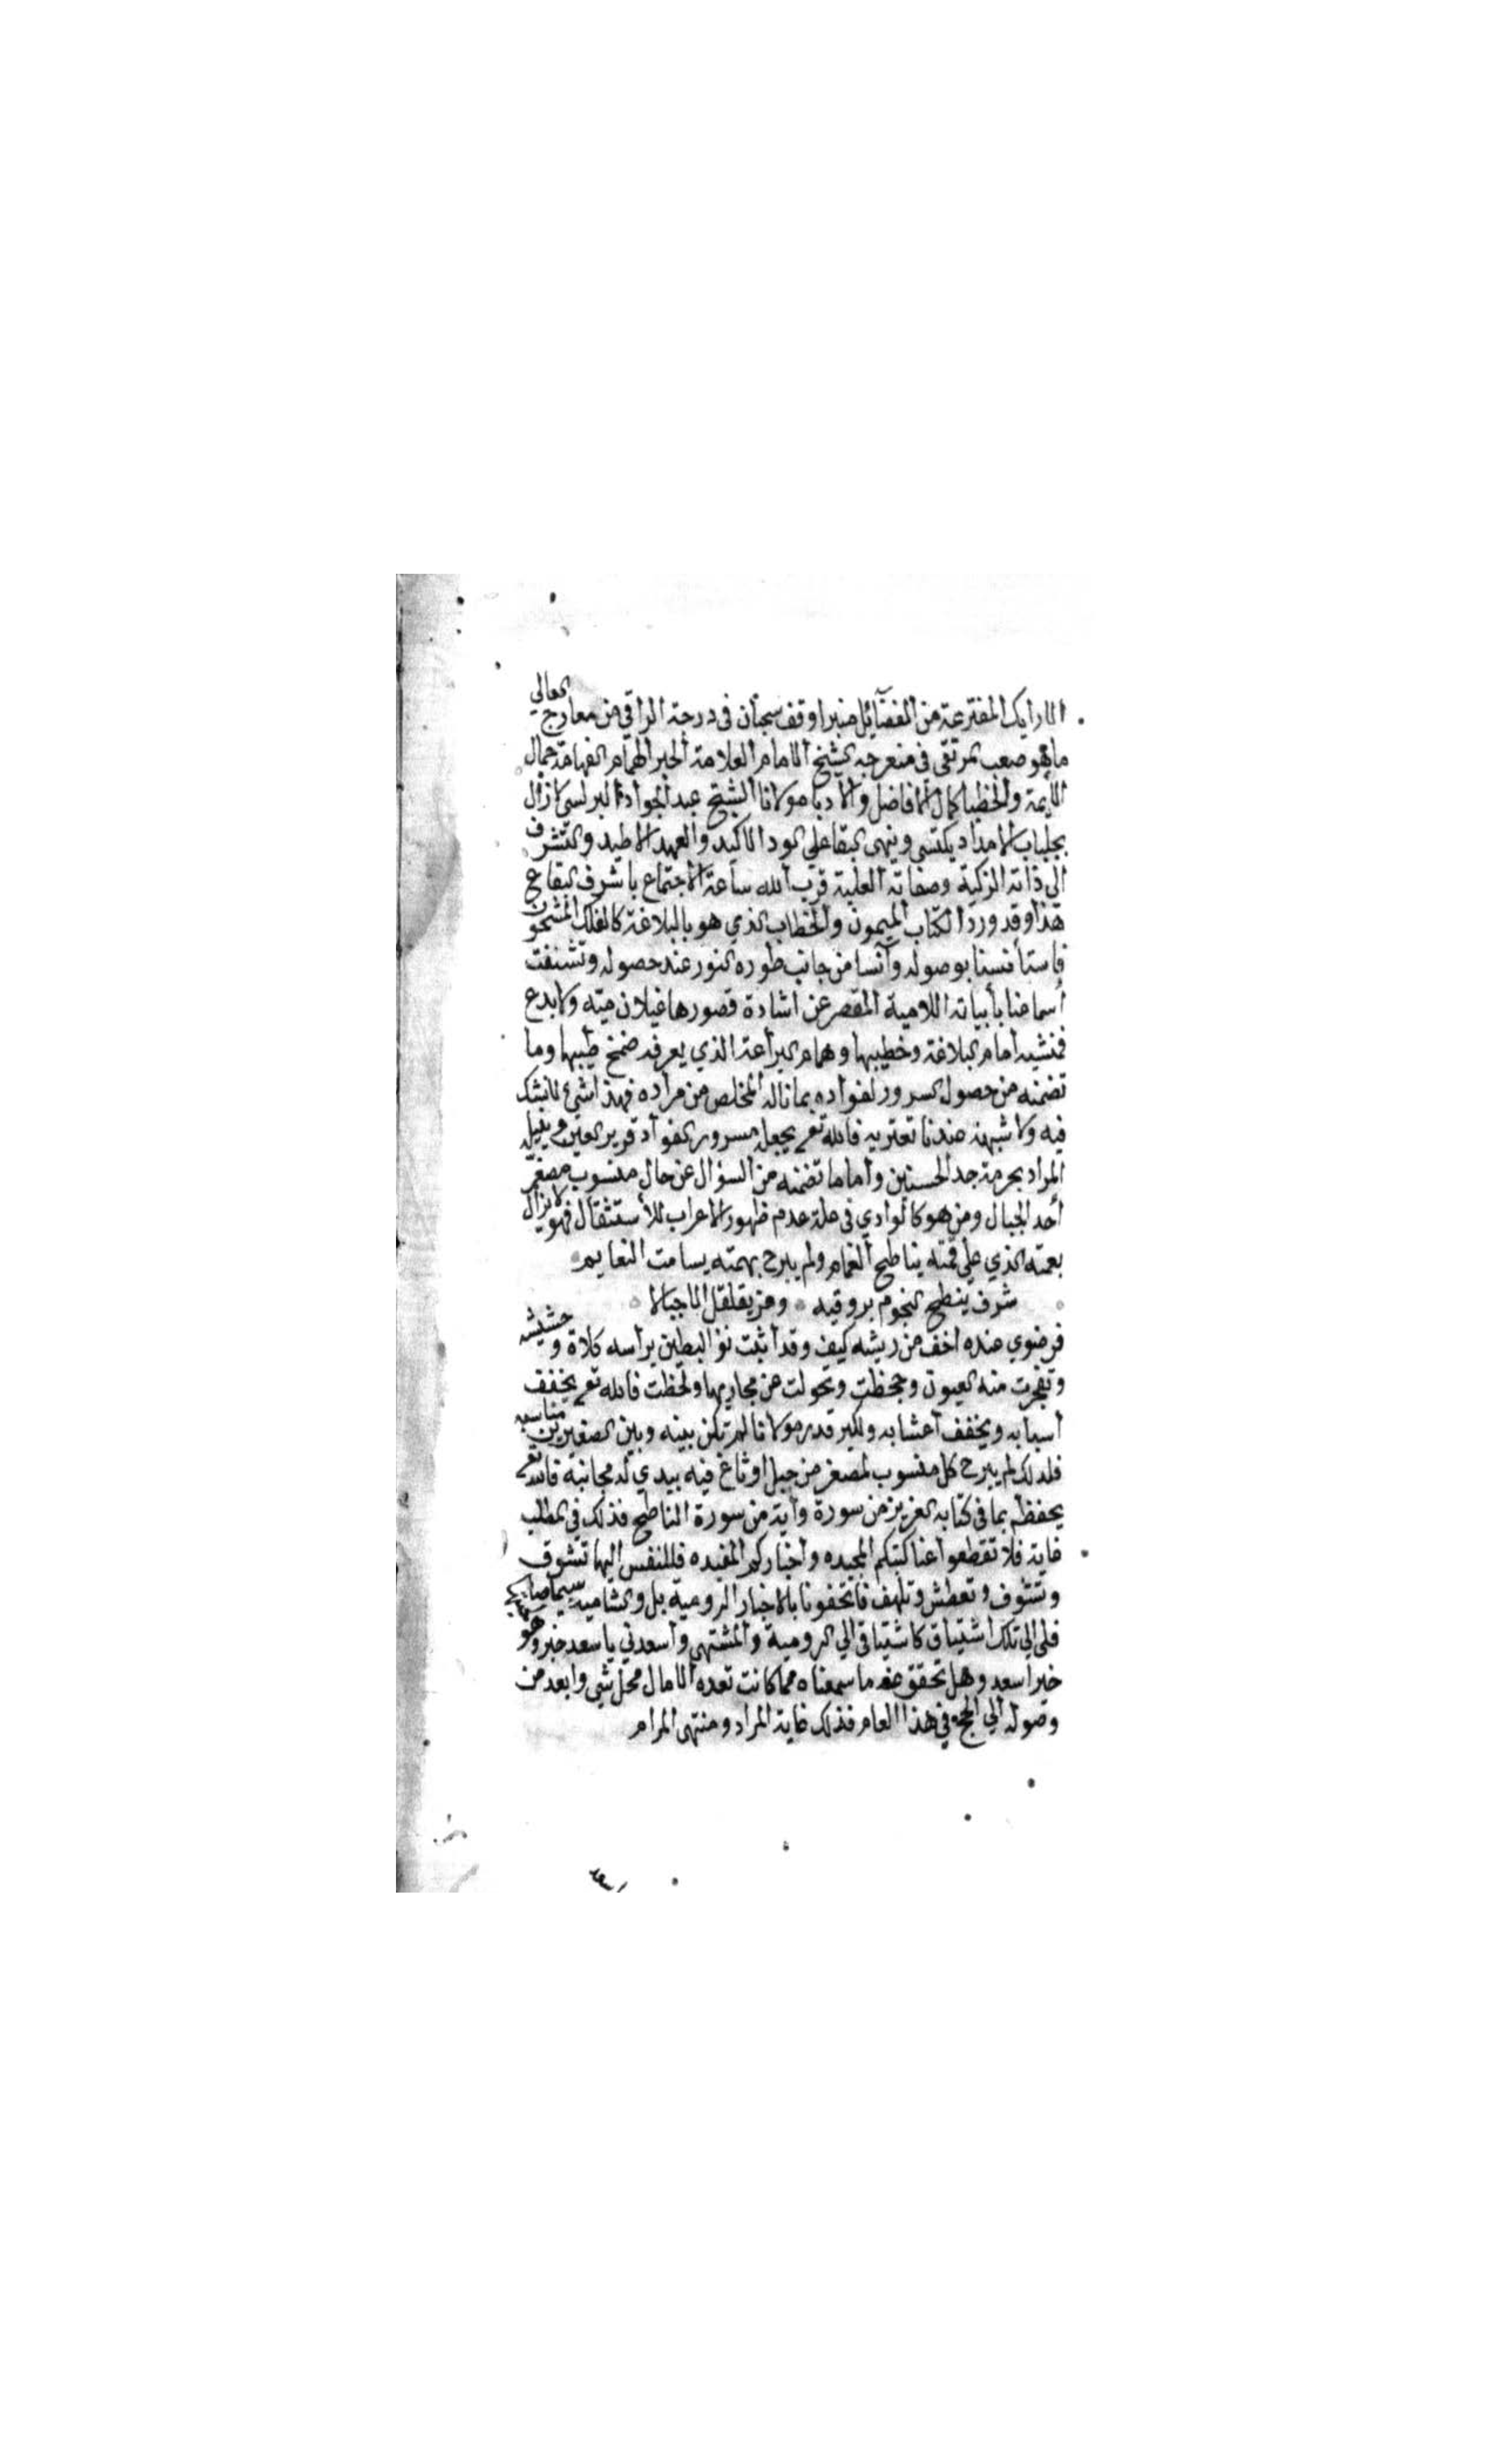 الارايك المفترعة من الفضآئل منبرا وقف سحبان في درجة الراقي من معارج المعالي
ما هو صعب المرتقى في منعرجه الشيخ الامام العلامة الحبر الهمام الفهامة جمال
الأيمة والخطبا كمال الافاضل والادبا مولانا الشيخ عبد الجواد البرلسي لا زال
بجلباب الامداد يكتسي وينهى البقا على الود الاكيد والعهد الاطيد والتشرف
الى ذاته الزكية وصفاته العلية قرب الله ساعة الاجتماع باشرف البقاع
هذا وقد ورد الكتاب الميمون والخطاب الذي هو بالبلاغة كالفلك المشحون
فاستأنسنا بوصوله وآنسا من جانب طوره النور عند حصوله وتشنفت
أسماعنا بأبياته اللامية المقصر عن اشادة قصورها غيلان ميّه ولا بدع
فمنشيه امام البلاغة وخطيبها وهمام البراعة الذي يعرفه ضمخ طيبها وما
تضمنه من حصول السرور لفواده بما ناله المخلص من مراده فهذا شئ لا نشك
فيه ولا شبهة عندنا تعتريه فالله تع يجعل مسرور الفوآد قرير العين وينيل
المراد بحرمة جد الحسنين وأما ما تضمنه من السؤال عن حال منسوب مصغر
أحد الجبال ومن هو كالوادي في علة عدم ظهور الاعراب للأستثقال فهو لا يزال
بعمته الذي على قمته يناطح الغمام ولم يبرح بهمته يسامت النعايم
شرف ينطح النجوم بروقيه وعز يقلقل الاجبالا
فرضوي عنده اخف من ريشه كيف وقد أثبت نؤ البطين برأسه كلاة وحشيشه
وتفجرت منه العيون وجحظت وتحولت عن مجاريها ولحظت فالله تع يخفف
أسبابه ويخفف اعشابه ولكبر قدر مولانا لم تكن بينه وبين الصغيرين مناسبه
فلذلك لم يبرح كل منسوب لمصغر من جبل اوثاغ فيه يبدي له مجانبة فالله تع
يحفظه بما في كتابه العزيز من سورة وآية من سورة الناطح فذلك في المطلب
غاية فلا تقطعوا عنا كتبكم المجيده واخباركم المفيده فللنفس اليها تشوق
وتشوف وتعطش وتلهف فاتحفونا بالاخبار الرومية بل والشامية سيما
فلي الى تلك اشتياق كاشتياقي الي الرومية والمشتهى وأسعدني يا سعد خبر وهو
خبر أسعد وهل تحقق عنه ما سمعناه مما كانت تعده الامال محل شي وابعد من
وصوله الي الحج في هذا العام فذلك غاية المراد ومنتهى المرام
اسعد